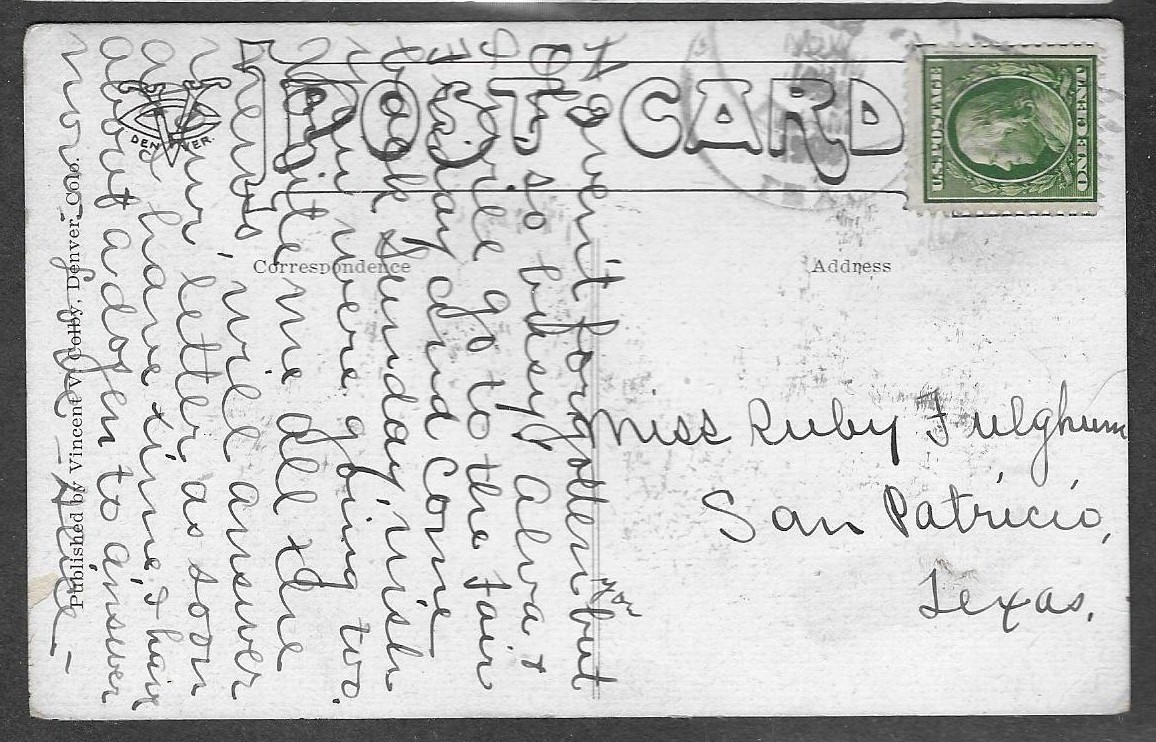 POST CARD
DENVER.
U.S. POSTAGE
ONE CENT
TEXAS
Correspondence
Address
Published by Vincent V. Colby, Denver, Colo.
Miss Ruby Fulghum
San Patricio,
Texas.
I havent forgotten you but
I'm so busy, Alva &
I will go to the Fair
Friday and come
back Sunday, wish
you were going too.
Write me all the
news will answer
your letter as soon
as have time, I have
about a dozen to answer
now.